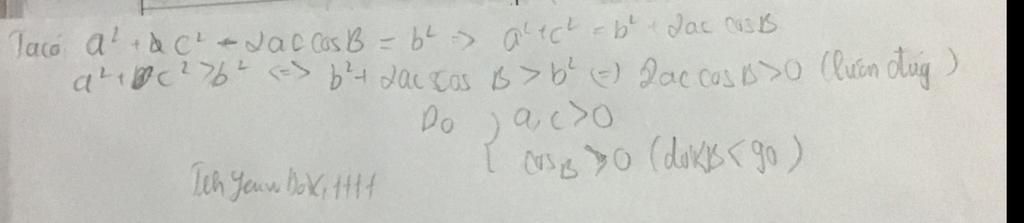 Ta có a² + c² - 2ac cosB = b² => a² + c² = b² + 2ac cosB
a² + c² > b² <=> b² + 2ac cos B > b² (=) 2ac cosB > 0 (luôn đúg)
Do { a, c > 0
cosB > 0 (do B < 90)